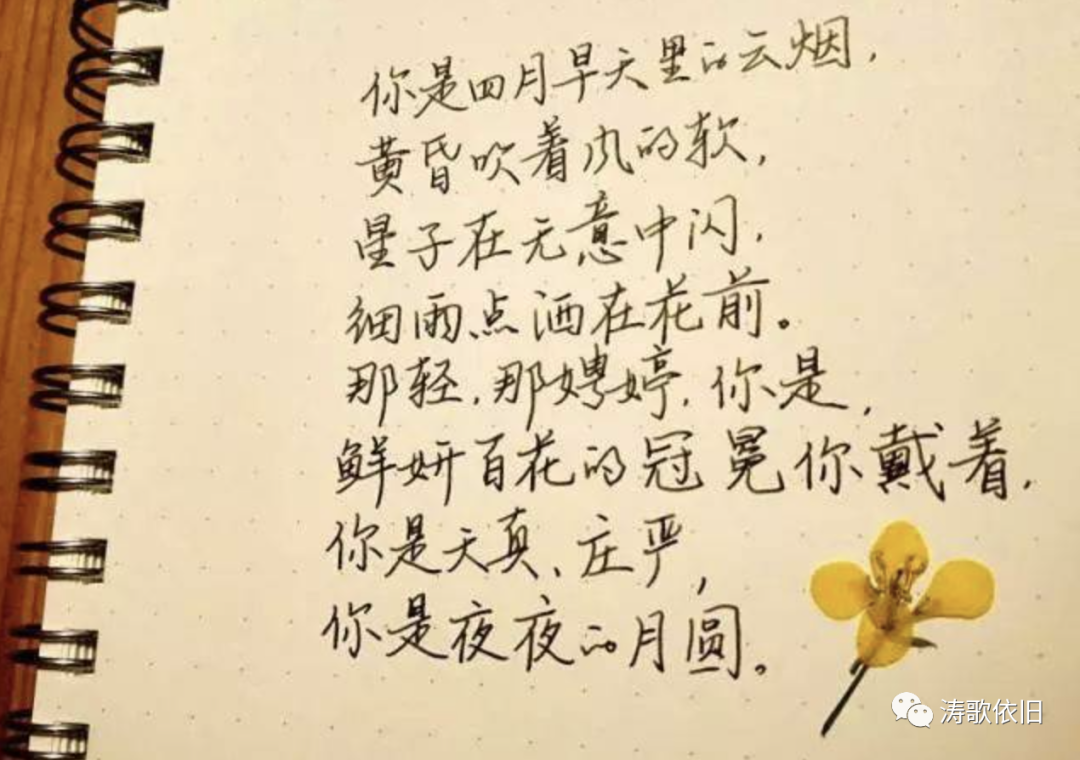 你是四月早天里的云烟，
黄昏吹着风的软，
星子在无意中闪，
细雨点洒在花前。
那轻，那娉婷，你是，
鲜妍百花的冠冕你戴着，
你是天真、庄严，
你是夜夜的月圆。
涛歌依旧